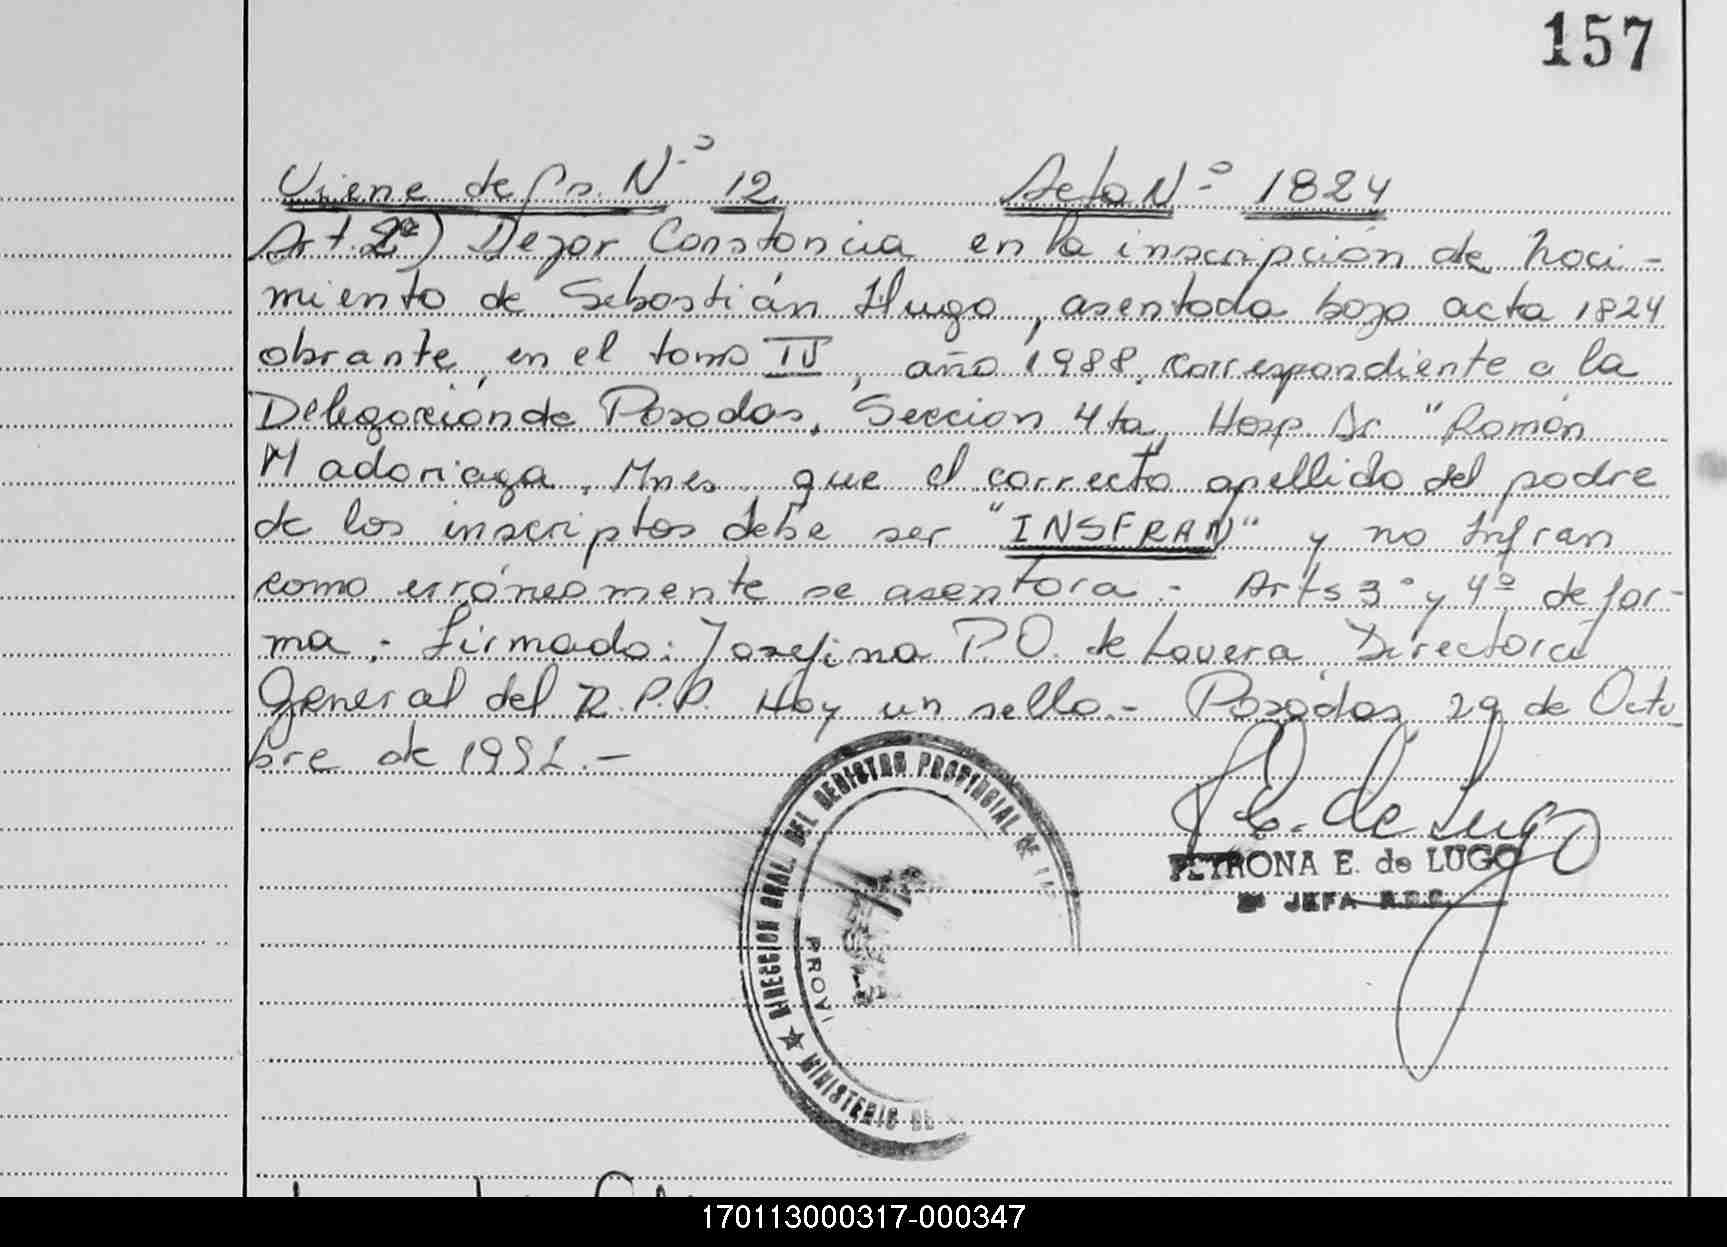 157
Viene de Fs. N.º 12 Acta N.º 1824
Art. 2º) Dejar Constancia en la inscripción de naci-
miento de Sebastián Hugo, asentada bajo acta 1824
obrante, en el tomo IV, año 1988, correspondiente a la
Delegación de Posadas, Seccion 4ta, Hosp. Dr "Ramón
Madariaga, Mnes. que el correcto apellido del padre
de los inscriptos debe ser "INSFRAN" y no Infran
como erróneamente se asentara.- Arts 3º y 4º de for-
ma.- Firmado: Josefina P.O. de Lovera Directora
General del R.P.P. Hay un sello.- Posadas, 29 de Octu-
bre de 1992.-
P.E. de Lugo
PETRONA E. de LUGO
JEFA
DIRECCION GRAL. DEL REGISTRO PROVINCIAL DE
PROVI
MINISTERIO DE
170113000317-000347